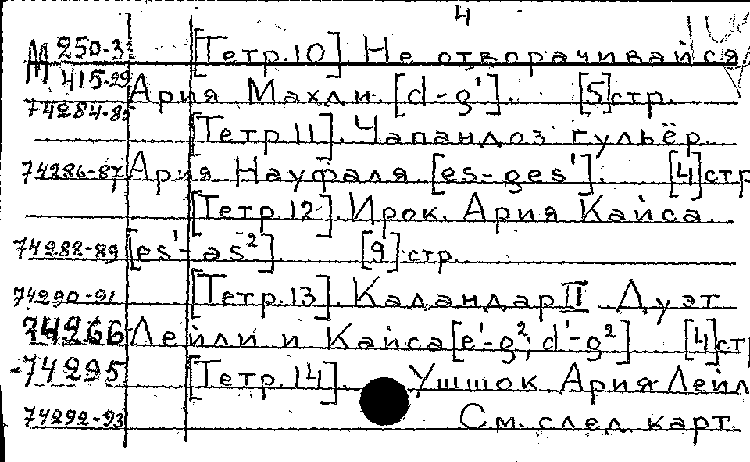 4
М 250-3 [Тетр.10] Не отворачивайся
415-99
Ария Махли [d-g']. [5] стр.
74284-85
[Тетр 11]. Чапандоз гульёр.
74286-87 Ария Науфаля [es-ges']. [4] стр
[Тетр.12]. Ирок. Ария Кайса
74288-89 [es'-as²]. [9] стр.
74290-91 [Тетр.13]. Каландар II Дуэт
74266 Лейли и Кайса [e'-g²; d'-g²] [4] ст
-74295 [Тетр.14]. Ушшок Ария Лейл
74292-93 См. след. карт.